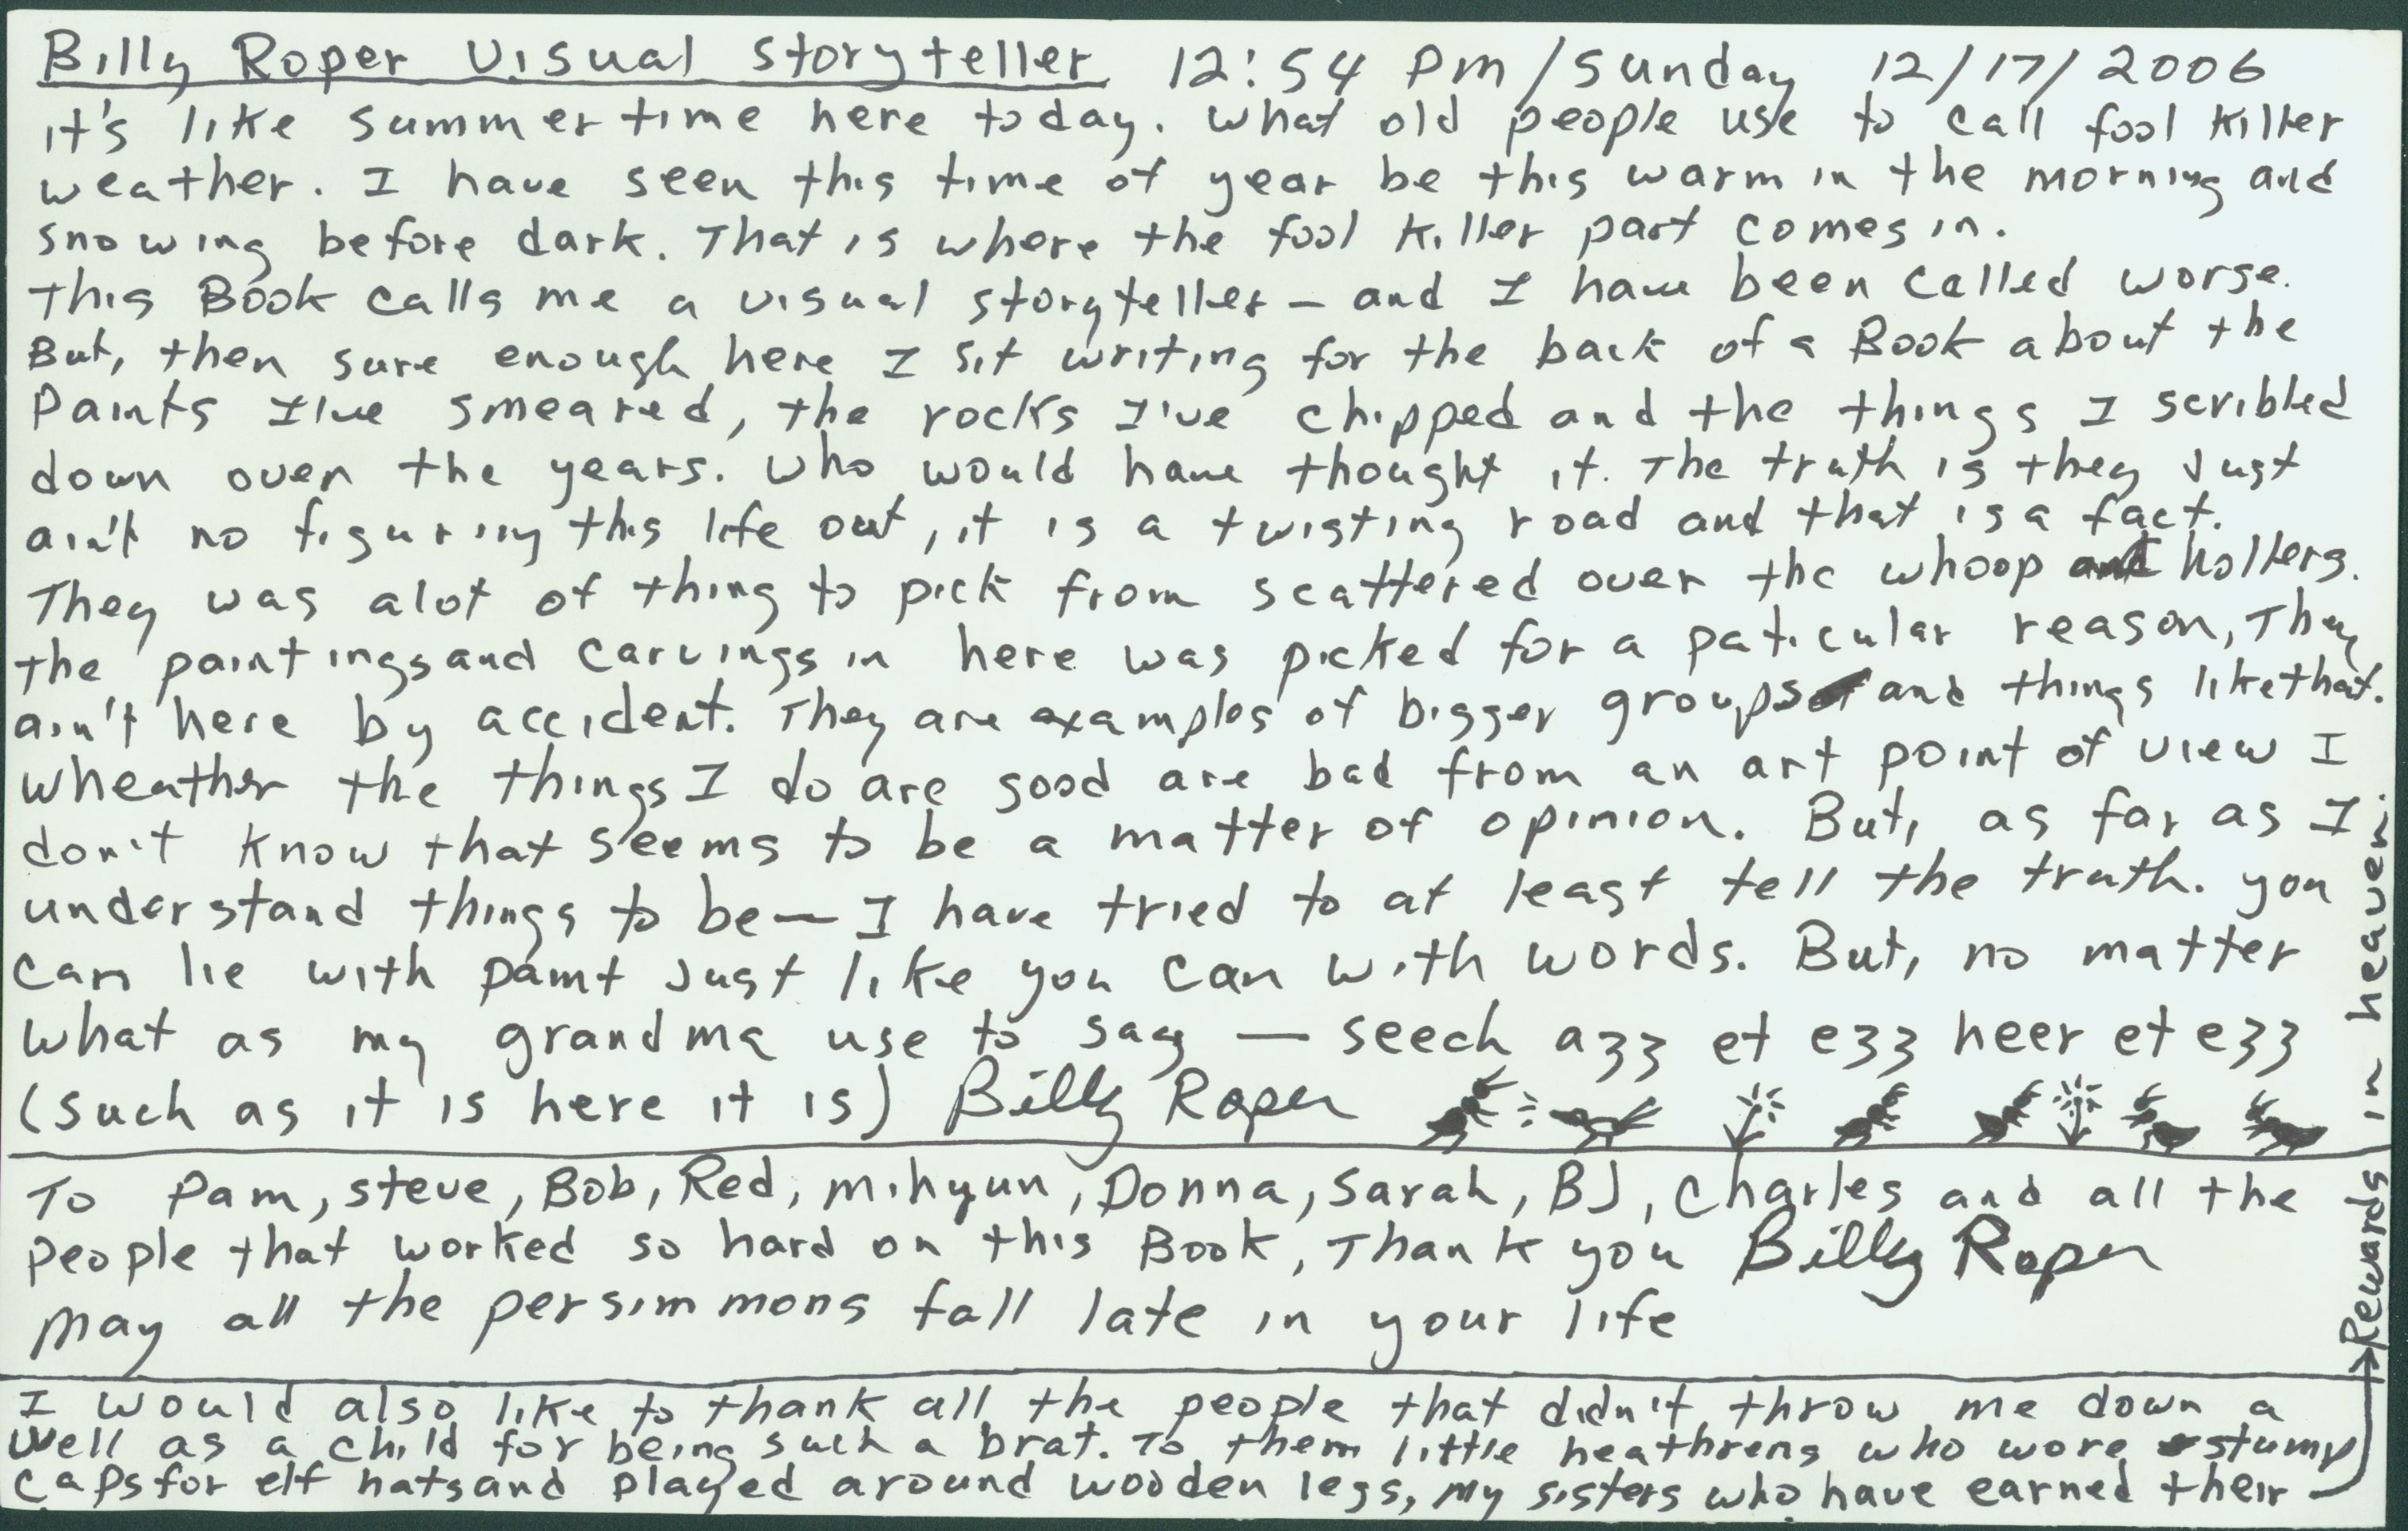 Billy Roper Visual Storyteller 12:54 PM/Sunday 12/17/2006
it's like summertime here today. What old people use to call fool killer
weather. I have seen this time of year be this warm in the morning and
snowing before dark. That is where the fool killer part comes in.
This Book calls me a visual storyteller – and I have been called worse.
But, then sure enough here I sit writing for the back of a Book about the
Paints I've smeared, the rocks I've chipped and the things I scribbled
down over the years. Who would have thought it. The truth is they Just
ain't no figuring this life out, it is a twisting road and that is a fact.
They was alot of thing to pick from scattered over the whoop and hollers.
the paintings and carvings in here was picked for a paticular reason, They
ain't here by accident. They are examples of bigger groups and things like that.
Wheather the things I do are good are bad from an art point of view I
don't know that seems to be a matter of opinion. But, as far as I
understand things to be — I have tried to at least tell the truth. you
can lie with paint Just like you can with words. But, no matter
what as my grandma use to say — seech azz et ezz heer et ezz
(such as it is here it is) Billy Roper
To Pam, Steve, Bob, Red, Mihyun, Donna, Sarah, BJ, Charles and all the
People that worked so hard on this Book, Thank you Billy Roper
May all the persimmons fall late in your life
I would also like to thank all the people that didn't throw me down a
Well as a child for being such a brat. To them little heathrens who wore stump
caps for elf hats and played around wooden legs, my sisters who have earned their
Rewards in heaven.